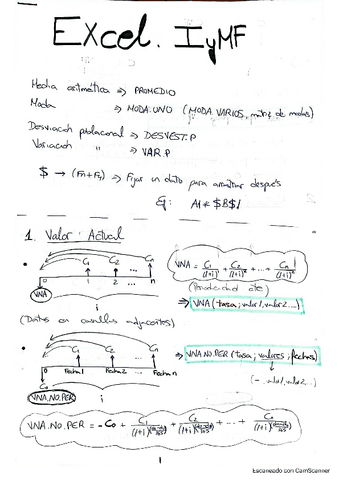 Excel. IyMF
Media aritmética => PROMEDIO
Moda => MODA.UNO (MODA.VARIOS, matriz de modas)
Desviación poblacional => DESVEST.P
Variación " => VAR.P
$ → (Fn+F4) => Fijar un dato para arrastrar después
Ej: A1*$B$1
1. Valor Actual
C1 C2 ... Cn
0 1 2 ... n
VNA i
VNA = C1/(1+i)^1 + C2/(1+i)^2 + ... + Cn/(1+i)^n
(Periodicidad cte)
=> VNA(tasa; valor1, valor2...)
(Datos en casillas adyacentes)
C1 C2 ... Cn
0 Fecha1 Fecha2 ... Fecha n
C0
VNA.NO.PER i
=> VNA.NO.PER(tasa; valores; fechas)
(-, valor1, valor2, ...)
VNA.NO.PER = -C0 + C1/(1+i) + C2/(1+i) + ... + Cn/(1+i)
1
Escaneado con CamScanner